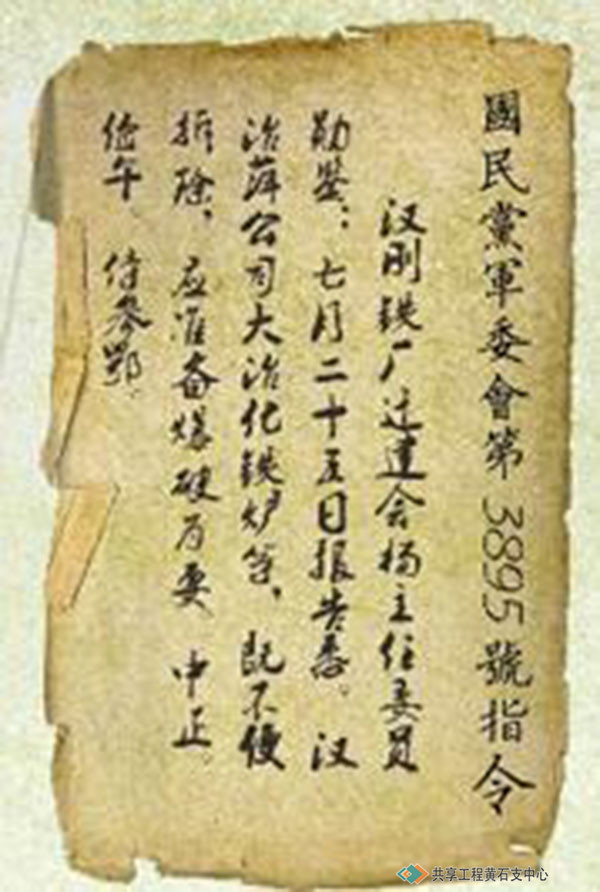 國民黨軍委會第3895號指令
汉刚铁厂迁建会杨主任委员
勋鉴：七月二十五日报告悉。汉
冶萍公司大冶化铁炉等，既不便
拆除，应准备爆破为要 中正
侍参鄂
共享工程黄石支中心